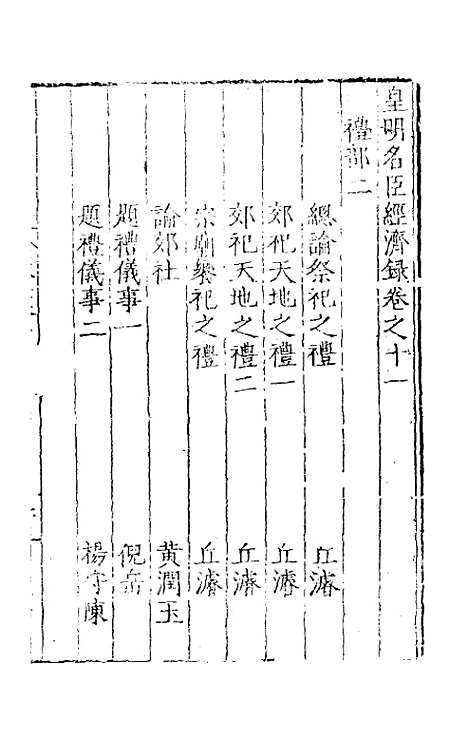 皇明名臣經濟録卷之十一
禮部二
總論祭祀之禮 丘濬
郊祀天地之禮一 丘濬
郊祀天地之禮二 丘濬
宗廟饗祀之禮 丘濬
論郊社 黄潤玉
題禮儀事一 倪岳
題禮儀事二 楊守陳